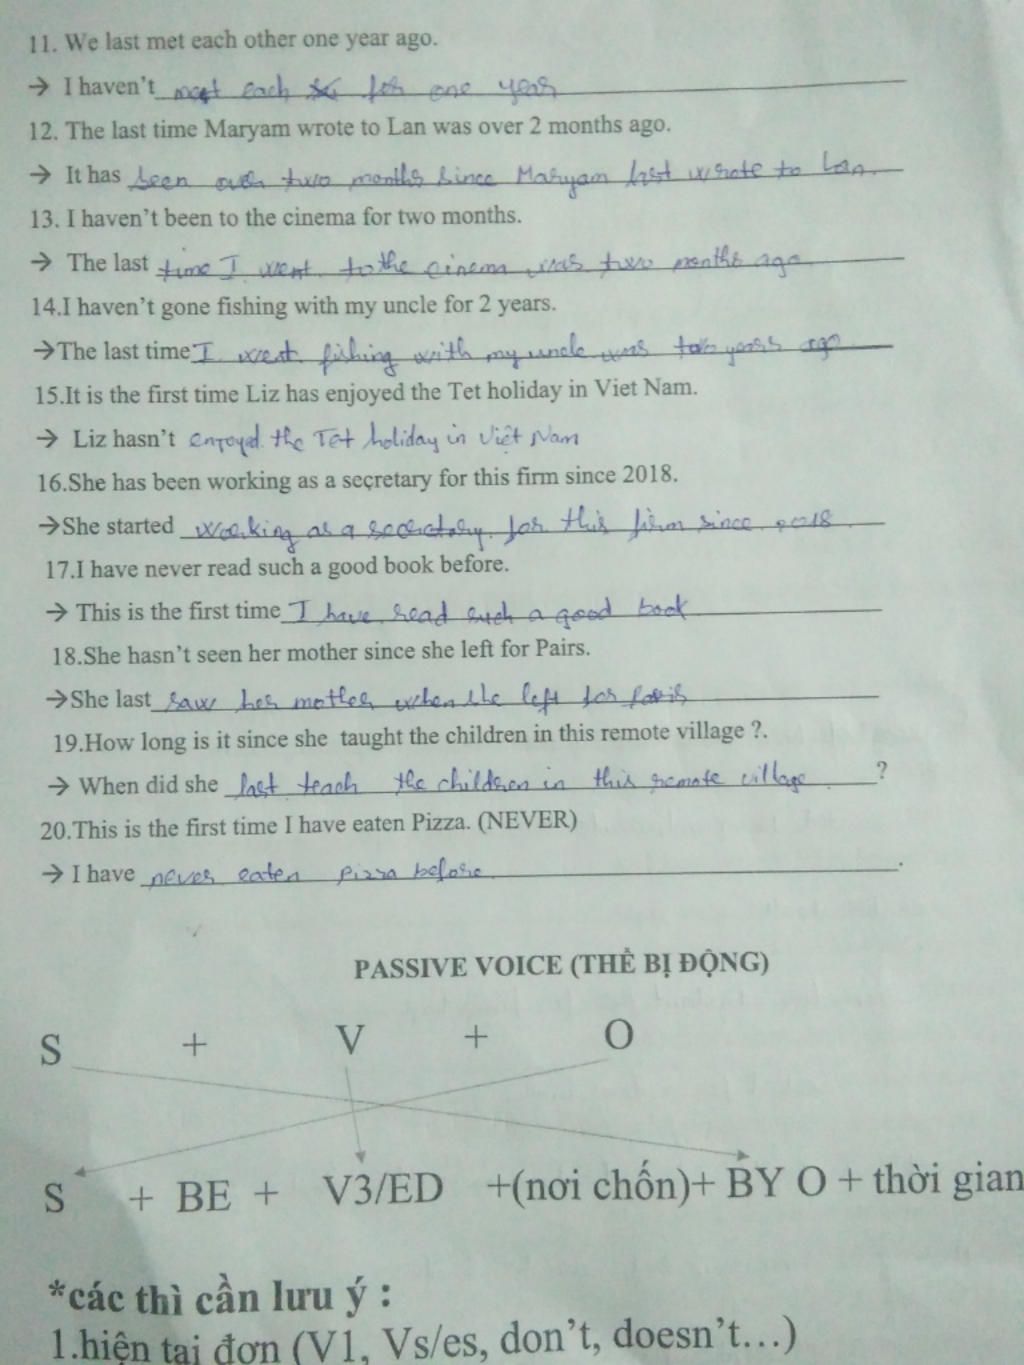 11. We last met each other one year ago.
→ I haven't met each for one year
12. The last time Maryam wrote to Lan was over 2 months ago.
→ It has been over two months since Maryam last wrote to Lan.
13. I haven't been to the cinema for two months.
→ The last time I went to the cinema was two months ago
14.I haven't gone fishing with my uncle for 2 years.
→The last time I went fishing with my uncle was two years ago
15.It is the first time Liz has enjoyed the Tet holiday in Viet Nam.
→ Liz hasn't enjoyed the Tet holiday in Việt Nam
16.She has been working as a secretary for this firm since 2018.
→She started working as a secretary for this firm since 2018
17.I have never read such a good book before.
→ This is the first time I have read such a good book
18.She hasn't seen her mother since she left for Pairs.
→She last saw her mother when she left for Paris
19.How long is it since she taught the children in this remote village ?.
→ When did she last teach the children in this remote village ?
20.This is the first time I have eaten Pizza. (NEVER)
→ I have never eaten pizza before .
PASSIVE VOICE (THỂ BỊ ĐỘNG)
S + V + O
S + BE + V3/ED +(nơi chốn)+ BY O + thời gian
*các thì cần lưu ý :
1.hiện tại đơn (V1, Vs/es, don't, doesn't…)